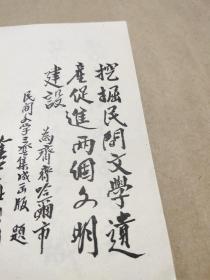 挖掘民间文學遺
産促進两個文明
建設
為齊齊哈爾市
民间文学三套集成出版 題